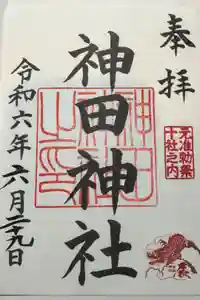 奉拝
元准勅祭
十社之内
神田神社
神田
神社
之印
令和六年六月二十九日